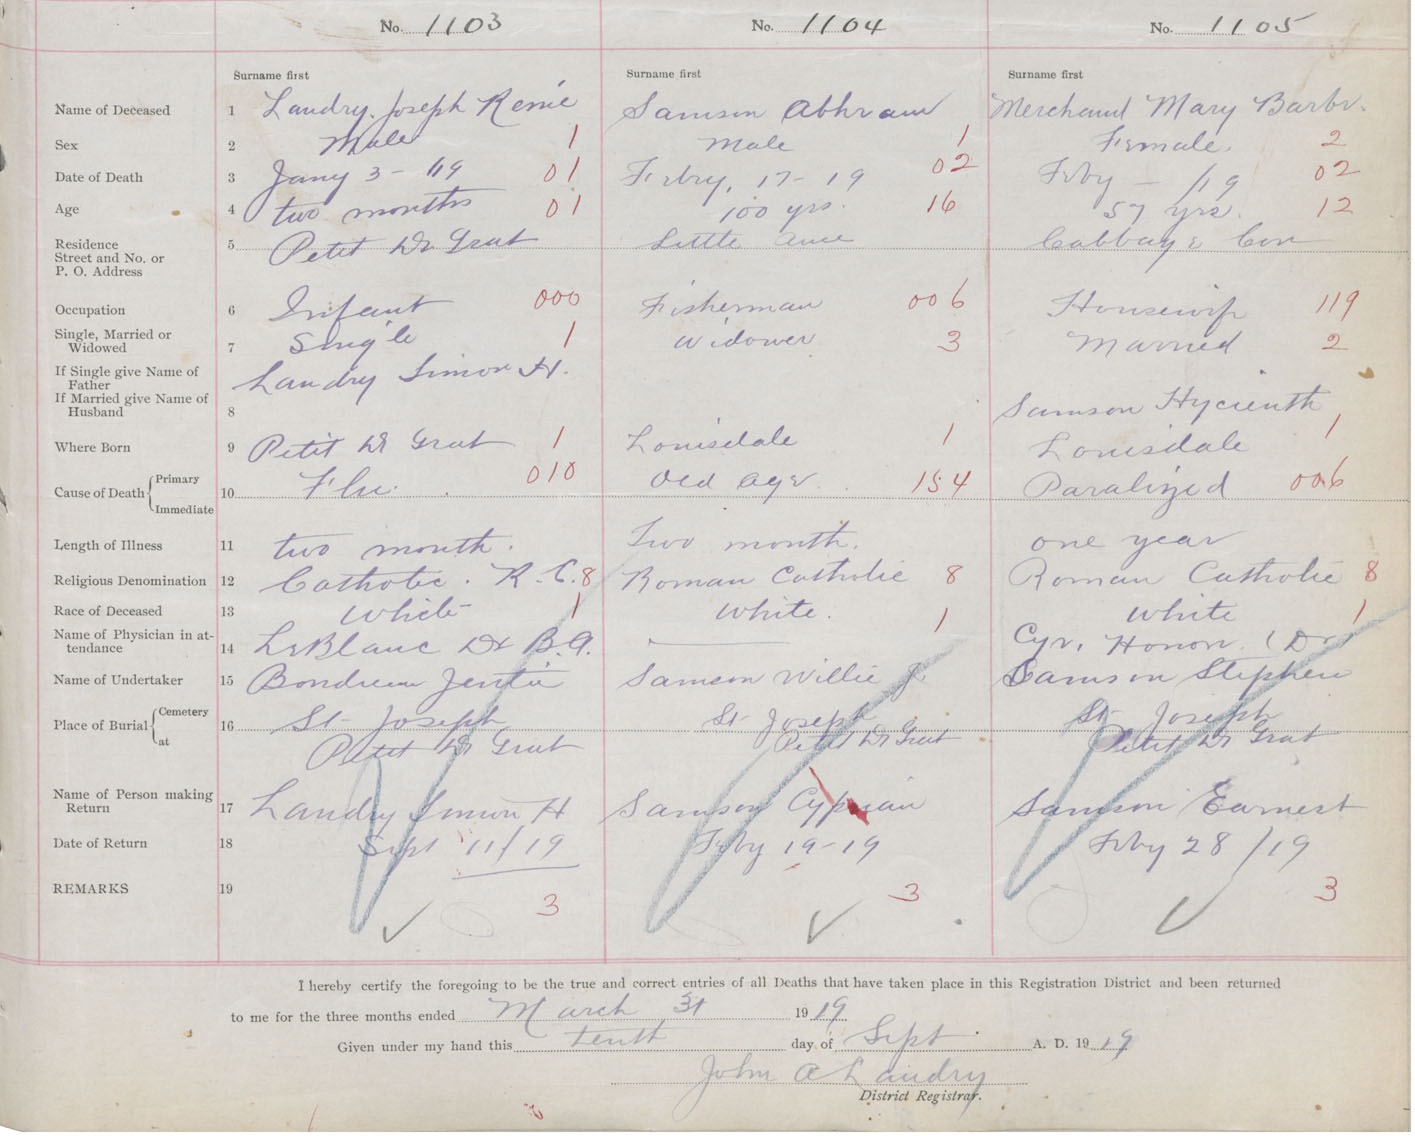 No. 1103 No. 1104 No. 1105
Surname first Surname first Surname first
Name of Deceased 1 Landry, Joseph Renie Samson Abhram Merchand Mary Barbr.
Sex 2 Male 1 Male 1 Female. 2
Date of Death 3 Jany 3 - /19 01 Feby, 17-19 02 Feby - /19 02
Age 4 two months 01 100 yrs. 16 57 yrs. 12
Residence
Street and No. or 5 Petit De Grat Little Anse Cabbage Cov
P. O. Address
Occupation 6 Infant 000 Fisherman 006 Housewife 119
Single, Married or
Widowed 7 Single 1 Widower 3 Married 2
If Single give Name of
Father Landry Simon H.
If Married give Name of
Husband 8 Samson Hycienth
Where Born 9 Petit De Grat 1 Louisdale 1 Louisdale 1
Cause of Death Primary 10 Flu. 010 Old Age. 154 Paralized 006
Immediate
Length of Illness 11 two month. Two month. one year
Religious Denomination 12 Catholic. R. C. 8 Roman Catholic 8 Roman Catholic 8
Race of Deceased 13 White 1 White. 1 White 1
Name of Physician in at-
tendance 14 LeBlanc Dr B.A. Cyr, Honor. (Dr
Name of Undertaker 15 Samson Willie J. Samson Stephen
Place of Burial Cemetery 16 St Joseph St Joseph St Joseph
at Petit De Grat Petit De Grat Petit De Grat
Name of Person making
Return 17 Landry Simon H Samson Cyprian Samson Earnest
Date of Return 18 Sept 11/19 Feby 19-19 Feby 28/19
REMARKS 19 3 3 3
I hereby certify the foregoing to be the true and correct entries of all Deaths that have taken place in this Registration District and been returned
to me for the three months ended March 31 1919
Given under my hand this tenth day of Sept A. D. 1919
John A Landry
District Registrar.